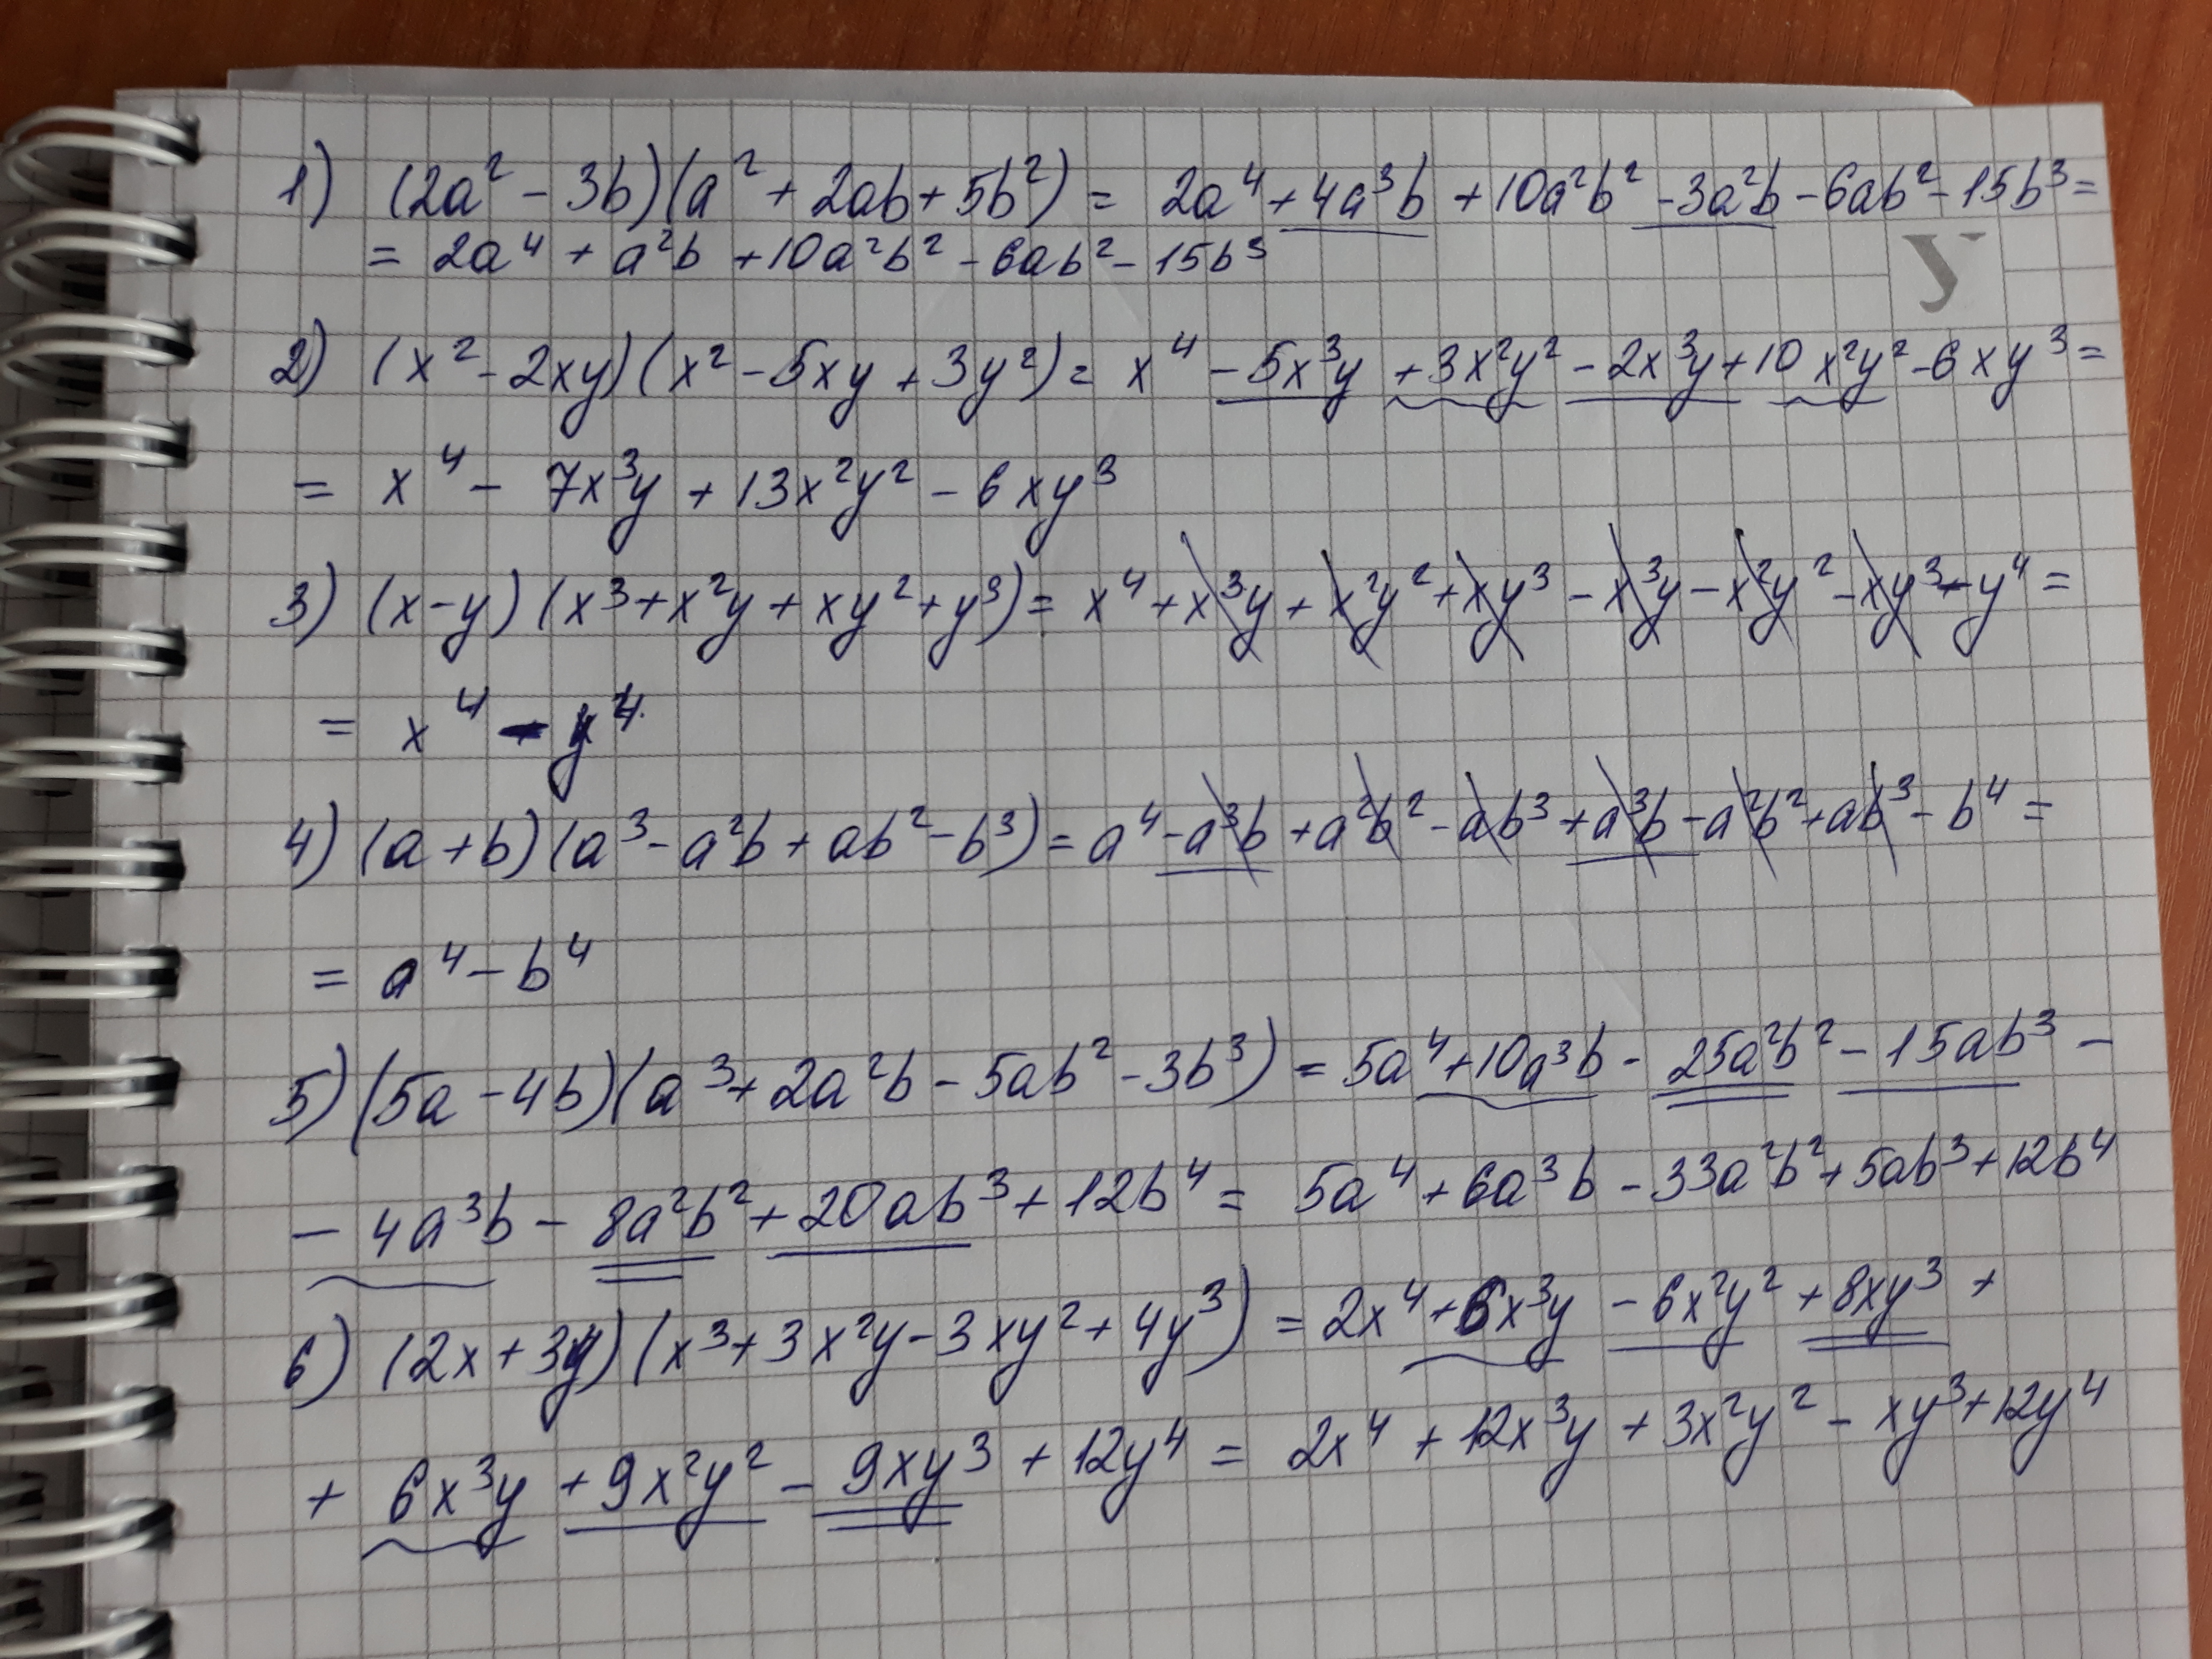 1) (2a² - 3b)(a² + 2ab + 5b²) = 2a⁴ + 4a³b + 10a²b² - 3a²b - 6ab² - 15b³ =
= 2a⁴ + a²b + 10a²b² - 6ab² - 15b³
У
2) (x² - 2xy)(x² - 5xy + 3y²) = x⁴ - 5x³y + 3x²y² - 2x³y + 10x²y² - 6xy³ =
= x⁴ - 7x³y + 13x²y² - 6xy³
3) (x - y)(x³ + x²y + xy² + y³) = x⁴ + x³y + x²y² + xy³ - x³y - x²y² - xy³ - y⁴ =
= x⁴ - y⁴.
4) (a + b)(a³ - a²b + ab² - b³) = a⁴ - a³b + a²b² - ab³ + a³b - a²b² + ab³ - b⁴ =
= a⁴ - b⁴
5) (5a - 4b)(a³ + 2a²b - 5ab² - 3b³) = 5a⁴ + 10a³b - 25a²b² - 15ab³ -
- 4a³b - 8a²b² + 20ab³ + 12b⁴ = 5a⁴ + 6a³b - 33a²b² + 5ab³ + 12b⁴
6) (2x + 3y)(x³ + 3x²y - 3xy² + 4y³) = 2x⁴ + 6x³y - 6x²y² + 8xy³ +
+ 6x³y + 9x²y² - 9xy³ + 12y⁴ = 2x⁴ + 12x³y + 3x²y² - xy³ + 12y⁴